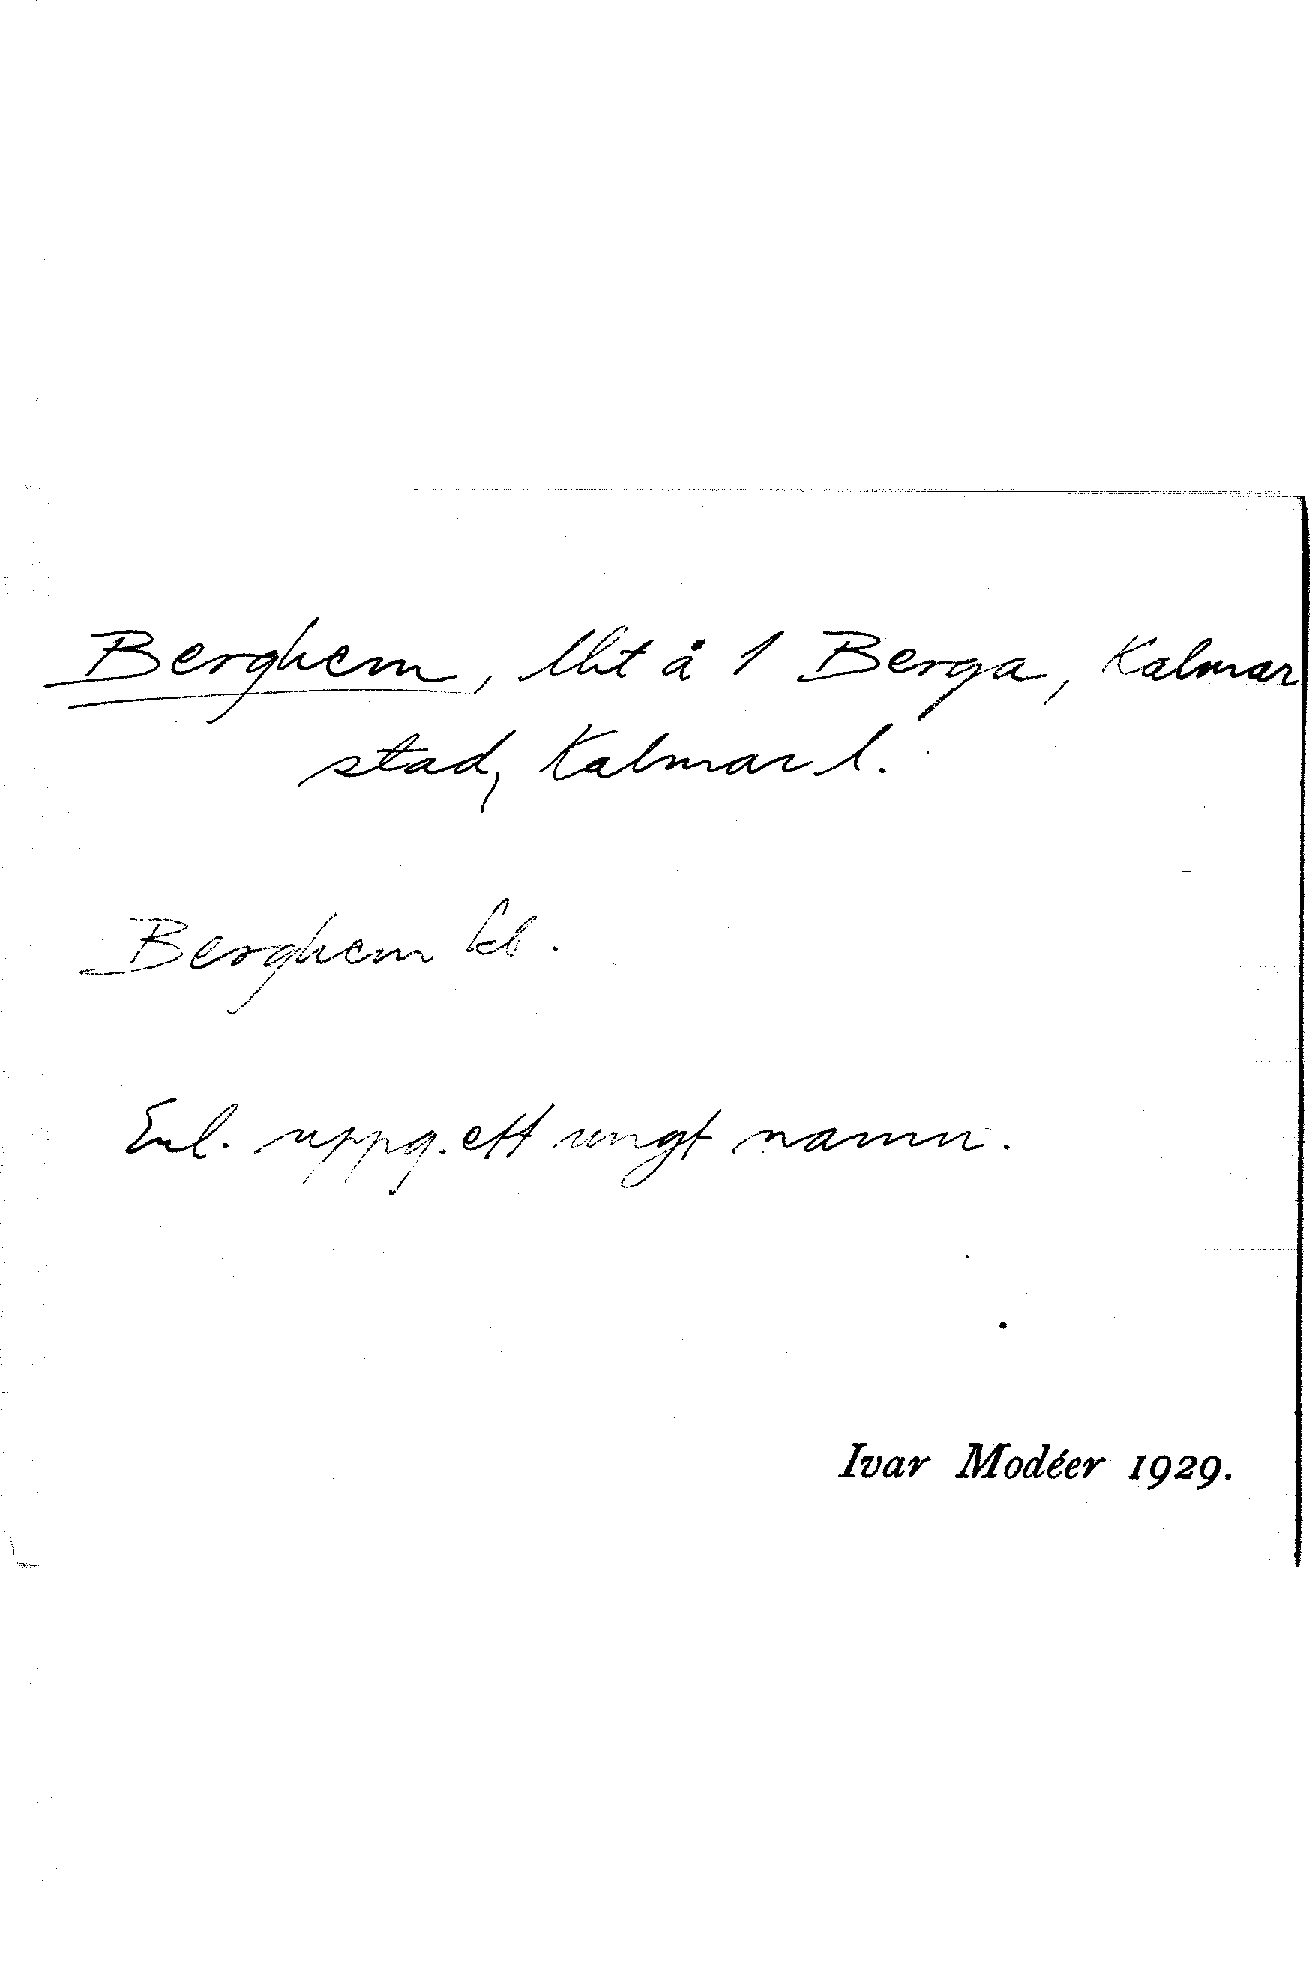 Berghem, lht å 1 Berga, Kalmar
stad, Kalmar l.
Berghem kb.
Enl. uppg. ett ungt namn.
Ivar Modéer 1929.